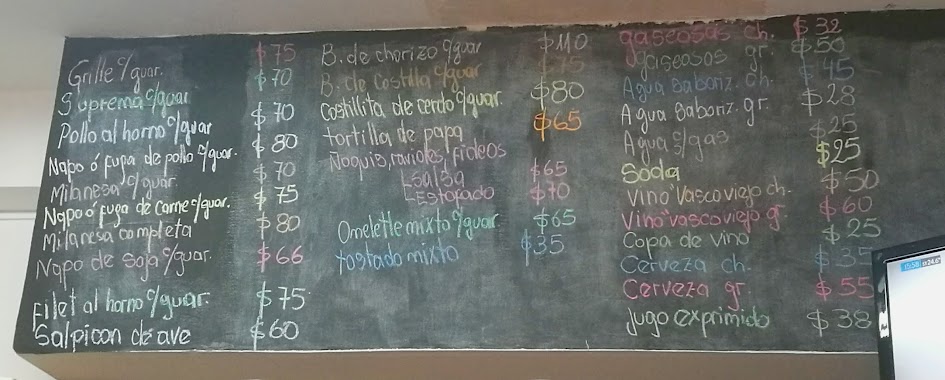 Grille c/guar. $75
Suprema c/guar $70
Pollo al horno c/guar $70
Napo ó fuga de pollo c/guar. $80
Milanesa c/guar. $70
Napo ó fuga de carne c/guar. $75
Milanesa completa $80
Napo de soja c/guar. $66
Filet al horno c/guar. $75
Salpicon de ave $60
B. de chorizo c/guar $110
B. de Costilla c/guar $75
Costillita de cerdo c/guar. $80
tortilla de papa $65
Ñoquis, ravioles, fideos
Salsa $65
Estofado $70
Omelette mixto c/guar $65
tostado mixto $35
gaseosas ch. $32
gaseosas gr. $50
Agua Saboriz. ch. $45
Agua saboriz. gr. $28
Agua s/gas $25
Soda $25
Vino "Vasco viejo ch. $50
Vino "vasco viejo gr. $60
Copa de vino $25
Cerveza ch. $35
Cerveza gr. $55
Jugo exprimido $38
15:58 24.6°